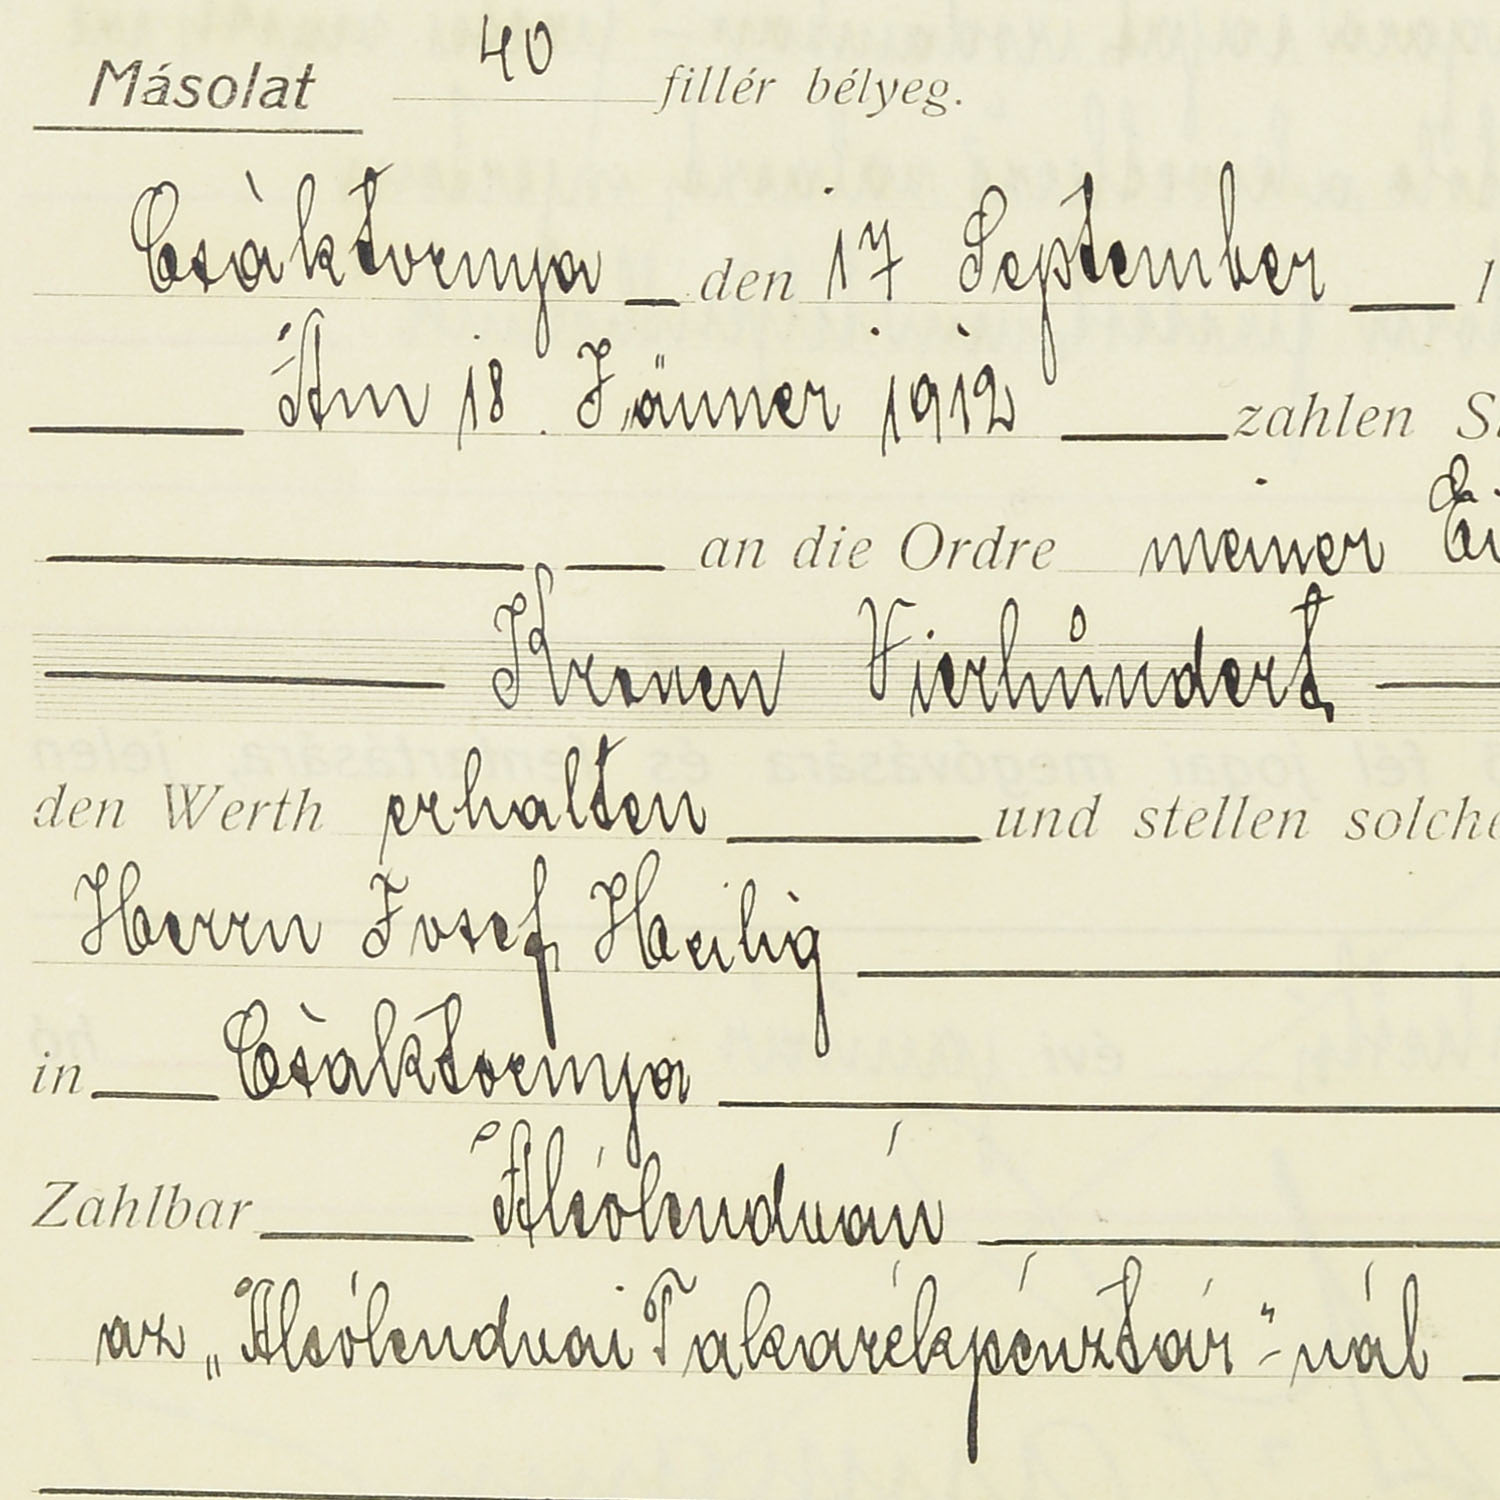 Másolat 40 fillér bélyeg.
Csáktornya den 17 September 1
Am 18. Jänner 1912 zahlen
an die Ordre meiner
Kronen Vierhundert
den Werth erhalten und stellen solche
Herrn Josef Heilig
in Csáktornya
Zahlbar Alsólendván
az „Alsólendvai Takarékpénztár"-nál